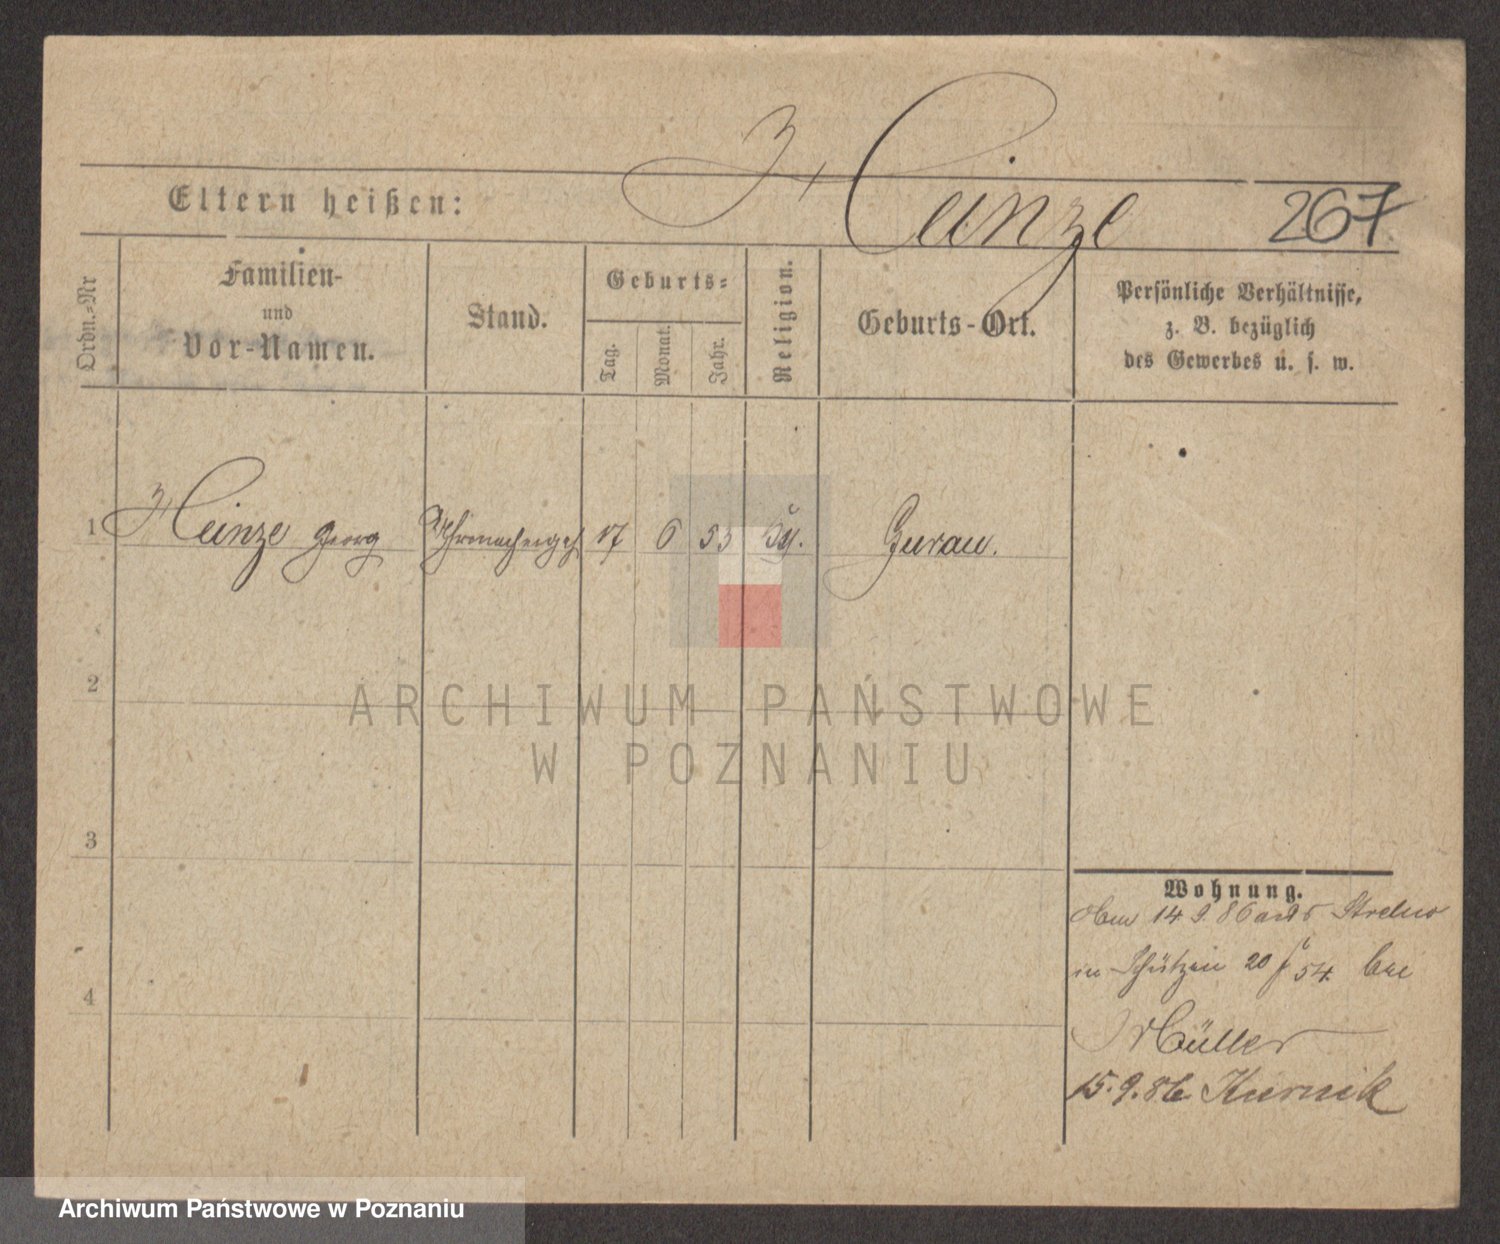 Heinze
267
Eltern heißen:
Ordn.-Nr
Familien-
und
Vor-Namen.
Stand.
Geburts-
Tag.
Monat.
Jahr.
Religion.
Geburts-Ort.
Persönliche Verhältnisse,
z. B. bezüglich
des Gewerbes u. s. w.
1 Heinze Georg Uhrmachergeh 17 6 53 Gurau.
2
3
4
ARCHIWUM PAŃSTWOWE
W POZNANIU
Wohnung.
14 9. 86 aus Strelno
in Schützen 20 / 54 bei
Müller
15.9.86 Kurnik
Archiwum Państwowe w Poznaniu